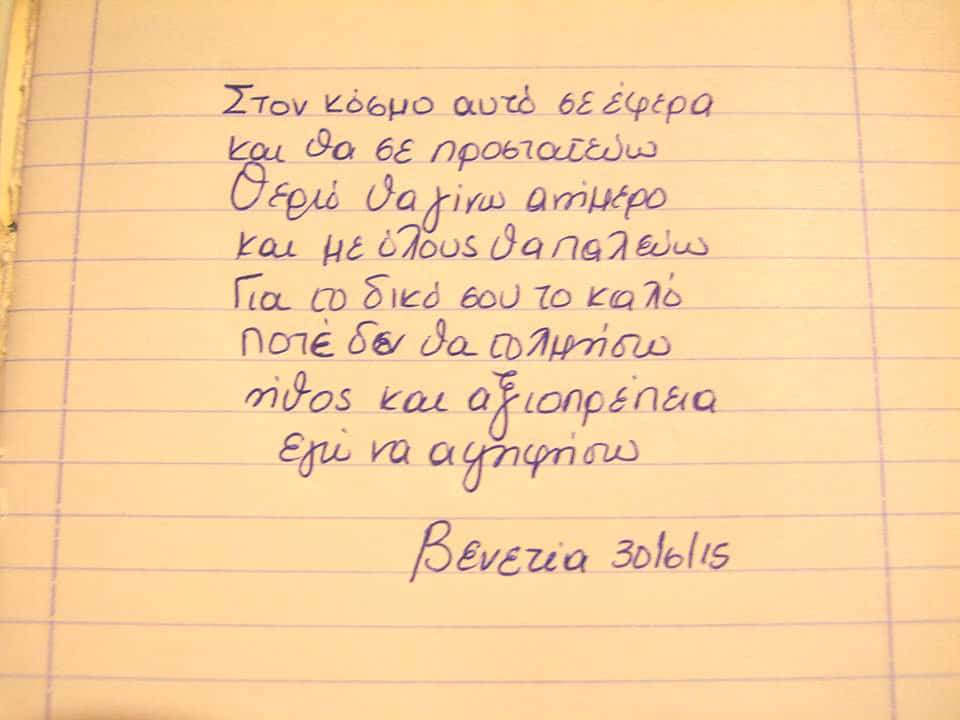 Στον κόσμο αυτό σε έφερα
και θα σε προστατεύω
Θεριό θα γίνω ανήμερο
και με όλους θα παλεύω
Για το δικό σου το καλό
ποτέ δεν θα τολμήσω
ήθος και αξιοπρέπεια
εγώ να αψηφήσω
Βενετία 30/6/15